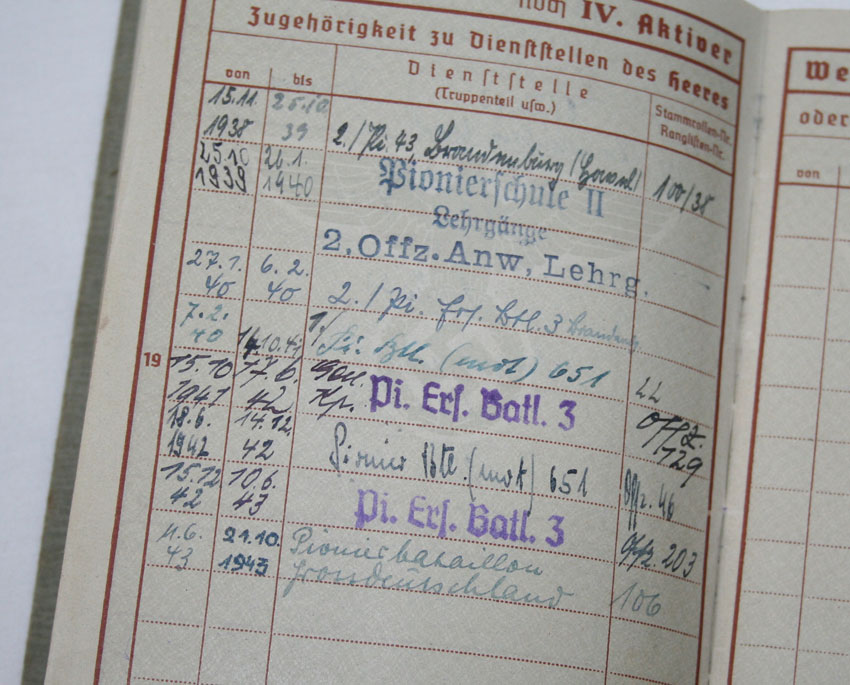 noch IV. Aktiver
Zugehörigkeit zu Dienststellen des Heeres
von bis Dienststelle (Truppenteil usw.) Stammrollen-Nr. Ranglisten-Nr.
15.11. 1938 25.10 39 2./Pi. 43, Brandenburg (Havel) 100/38
25.10 1939 26.1. 1940 Pionierschule II
Lehrgänge
2. Offz. Anw. Lehrg.
27.1. 40 6.2. 40 2./Pi. Ers. Btl. 3 Brandenbg.
7.2. 40 14.10.41 1./Pi. Btl. (mot) 651 22
19 15.10 1941 17.6. 42 Gen. Kp. Pi. Ers. Batl. 3 Offz. 129
18.6. 1942 14.12. 42 Pionier Btl. (mot) 651 Offz. 46
15.12 42 10.6. 43 Pi. Ers. Batl. 3 Offz. 203
11.6. 43 21.10. 1943 Pionierbataillon
Grossdeutschland 106
We
oder
von